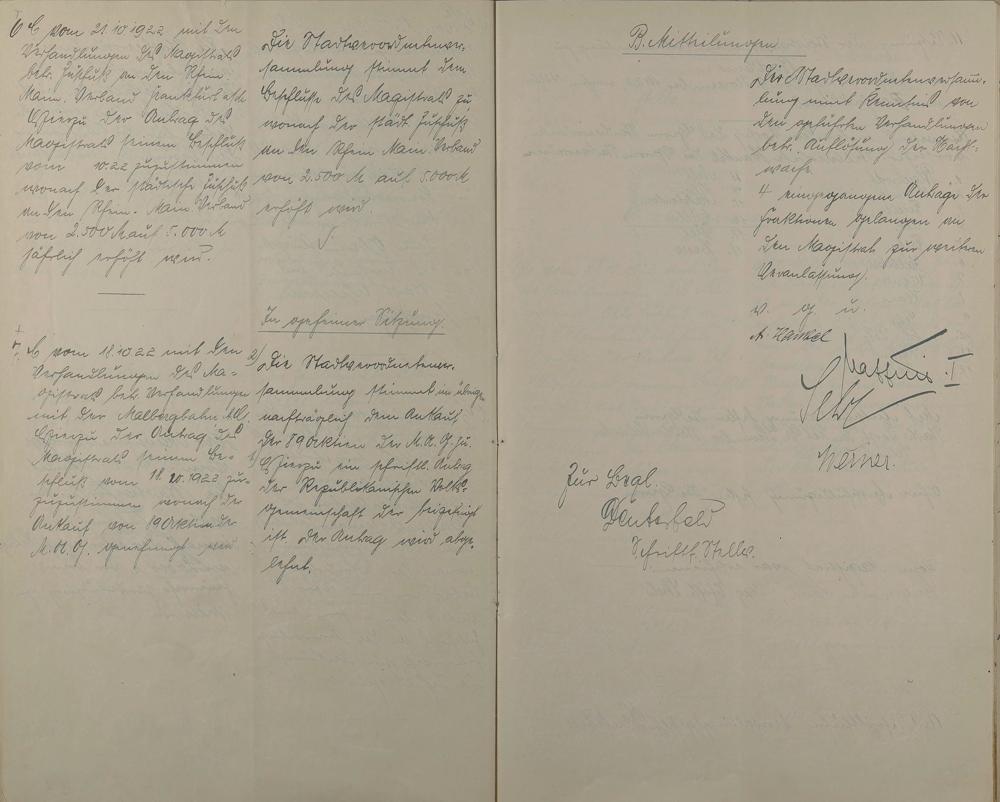 6 C vom 21.10.1922 mit den
Verhandlungen des Magistrats
betr. Zuschuß an den Rhein-
Main. Verband Frankfurt a/M
Hierzu der Antrag des
Magistrats seinem Beschluß
vom 10.22 zuzustimmen
wonach der städtische Zuschuß
an den Rhein-Main Verband
von 2.500 M auf 5.000 M
jährlich erhöht wird.
Die Stadtverordnetenver-
sammlung stimmt dem
Beschlusse des Magistrats zu
wonach der städt. Zuschuß
an den Rhein Main. Verband
von 2.500 M auf 5000 M
erhöht wird.
In geheimer Sitzung.
C vom 18.10.22 mit den
Verhandlungen des Ma-
gistrats betr. Verhandlungen
mit der Malbergbahn A.G.
Hierzu der Antrag des
Magistrats seinem Be-
schluß vom 18.10.1922 zu-
zuzustimmen wonach der
Ankauf von 19 Aktien der
M.A.G. genehmigt wird
2) Die Stadtverordnetenver-
sammlung stimmt im übrigen
nachträglich dem Ankauf
der 19 Aktien der M.A.G. zu.
Hierzu ein schriftl. Antrag
der Republikanischen Volks-
gemeinschaft der beigefügt
ist. Der Antrag wird abge-
lehnt.
B. Mitteilungen
Die Stadtverordnetenversamm-
lung nimt Kenntnis von
den geführten Verhandlungen
betr. Auflösung der Nacht-
wache.
4 eingegangene Anträge der
Fraktionen gelangen an
den Magistrat zur weiteren
Veranlassung.
v. g. u.
Werner.
Zur Begl.
Schriftf. Stellv.